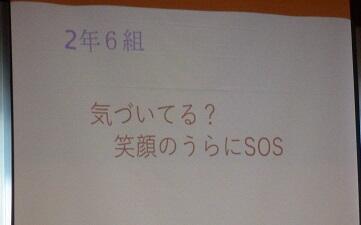 2年6組
気づいてる?
笑顔のうらにSOS